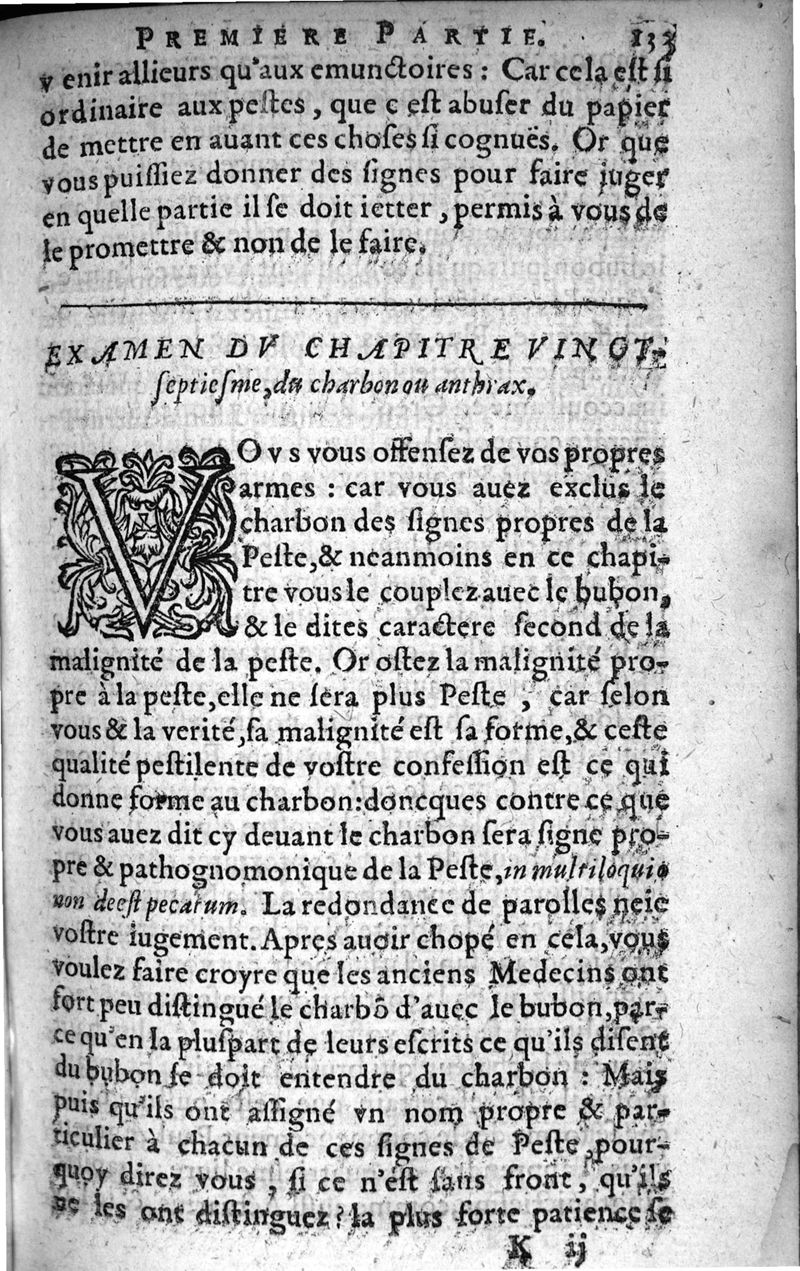 PREMIERE PARTIE. 133
venir allieurs qu'aux emunctoires : Car cela est si
ordinaire aux pestes, que c est abuſer du papier
de mettre en auant ces choſes ſi cognuës. Or que
vous puiſſiez donner des ſignes pour faire juger
en quelle partie il ſe doit ietter, permis à vous de
le promettre & non de le faire.
EXAMEN DV CHAPITRE VINGT-
ſeptieſme, du charbon ou anthrax.
VOvs vous offenſez de vos propres
armes : car vous auez exclus le
charbon des ſignes propres de la
Peſte, & neanmoins en ce chapi-
tre vous le couplez auec le bubon,
& le dites caractere ſecond de la
malignité de la peſte. Or oſtez la malignité pro-
pre à la peſte, elle ne ſera plus Peſte, car ſelon
vous & la verité, ſa malignité eſt ſa forme, & ceſte
qualité peſtilente de voſtre confeſſion eſt ce qui
donne forme au charbon: doncques contre ce que
vous auez dit cy deuant le charbon ſera ſigne pro-
pre & pathognomonique de la Peſte, in multiloquio
non deeſt pecatum. La redondance de parolles neie
voſtre iugement. Apres auoir chopé en cela, vous
voulez faire croyre que les anciens Medecins ont
fort peu diſtingué le charbõ d'auec le bubon, par-
ce qu'en la pluſpart de leurs eſcrits ce qu'ils diſent
du bubon ſe doit entendre du charbon : Mais
puis qu'ils ont aſſigné vn nom propre & par-
ticulier à chacun de ces ſignes de Peſte, pour-
quoy direz vous, ſi ce n'eſt ſans front, qu'ils
ne les ont diſtinguez? la plus forte patience ſe
K ij